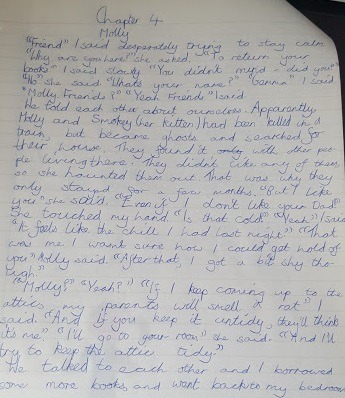 Chapter 4
Molly
"Friend" I said desperately trying to stay calm
"Why are you here?" she asked. "To return your
books" I said slowly "You didn't mind - did you"
"No" she said "Whats your name?" "Gemma" I said
"Molly. Friends?" "Yeah Friends" I said.
We told each other about ourselves. Apparently,
Molly and Smokey (her kitten) had been killed in a
train, but became ghosts and searched for
their house. They found it only with other peo-
ple living there. They didn't like any of them
so she haunted them out. That was why they
only stayed for a few months. "But I like
you" she said. "Even if I don't like your Dad"
She touched my hand "Is that cold" "Yeah" I said
"It feels like the chill I had last night" "That
was me I wasnt sure how I could get hold of
you" Molly said. "After that, I got a bit shy tho-
ugh"
"Molly?" "Yeah?" "If I keep coming up to the
attic, my parents will smell a rat" I
said. "And if you keep it untidy, they'll think
its me." "I'll go to your room," she said. "And I'll
try to keep the attic tidy."
We talked to each other and I borrowed
some more books and went back to my bedroom